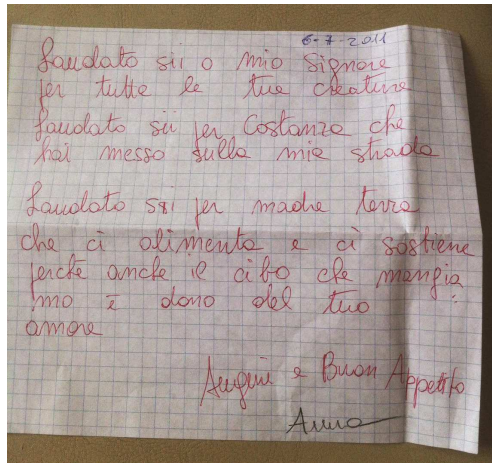 6-7-2011
Laudato sii o mio Signore
per tutte le tue creature
Laudato sii per Costanza che
hai messo sulla mia strada
Laudato sii per madre terra
che ci alimenta e ci sostiene
perchè anche il cibo che mangia
mo è dono del tuo
amore
Auguri e Buon Appetito
Anna